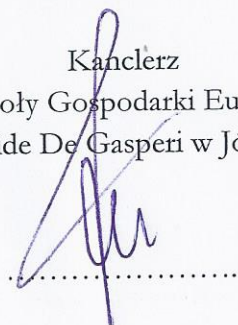 Kanclerz
oły Gospodarki Eu
ide De Gasperi w Jó
........................